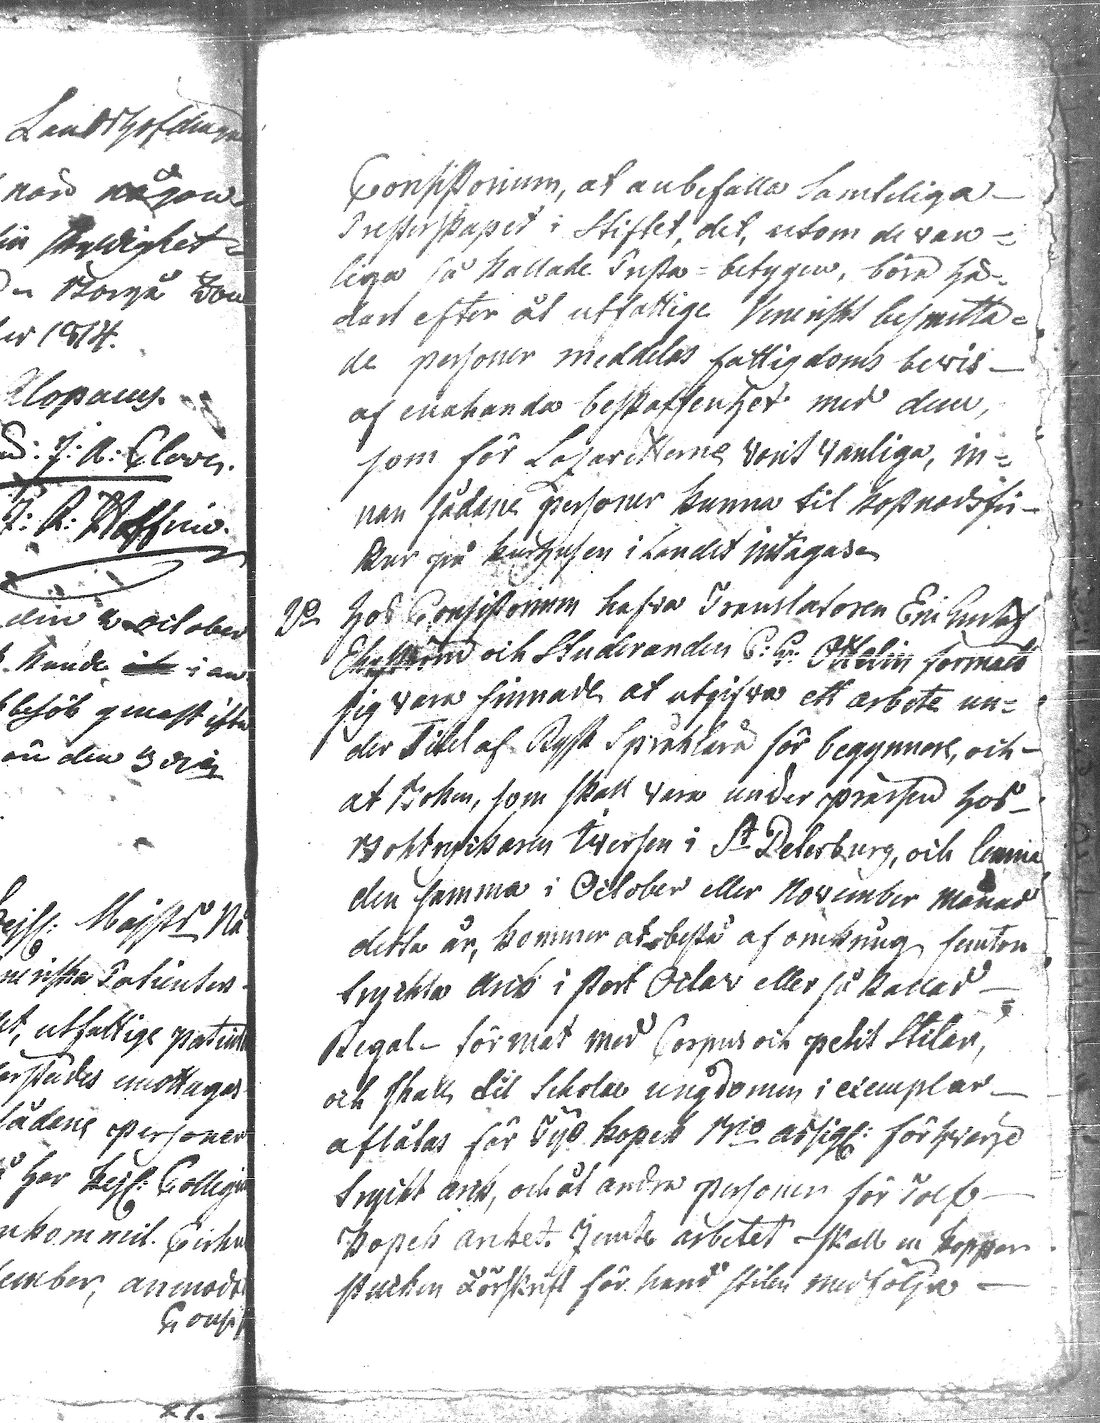 Landshöfdinge
när någon
skyldighet=
Borgå Dom
ber 1814.
Alopaeus.
J: A: Cleve.
den 2 October
kunde i an
besök genast efter
den 3 dito
Kejs: Majsts Nå
neriska Patienter
et, utfattige patient
förstådes emottagas
sådane personer
har Kejs: Collegi
inkommit. Cirku
tember, anmodt
Consi
Consistorium, at anbefalla samteliga
Presterskapet i Stiftet, det, utom de van=
liga så kallade Presta=betygen, böra hä=
dan efter åt utfattige Veneriskt besmitta=
de personer meddelas fattigdoms bevis
af enahanda beskaffenhet med dem,
som för Lazaretterne varit vanliga, in=
nan sådane personer kunna til kostnadsfri
Kur på kurhusen i Landet intagas.
Vo Hos Consistorium hafva Translatoren Eric Gustaf
Ehrström och Studeranden C: G: Ottelin förmält
sig vara sinnade at utgifva ett arbete un=
der Titel af Rysk Språklära för begynnare, och
at Boken, som skall vara under prässen hos
Boktryckaren Iversen i St Petersburg, och lemna
den samma i October eller November månad
detta år, kommer at bestå af omkring femton
tryckta Ark i stort Octav eller så kallad
Regal-format med Corpus och petit Stilar,
och skall til Schole ungdomen i exemplar
aflåtas för Tijo kopek Bco assign: för hvarje
tryckt ark, och åt andra personer för Tolf
kopek arket. Jemte arbetet skall en koppar
stucken Förskrift för hand stilen medfölja